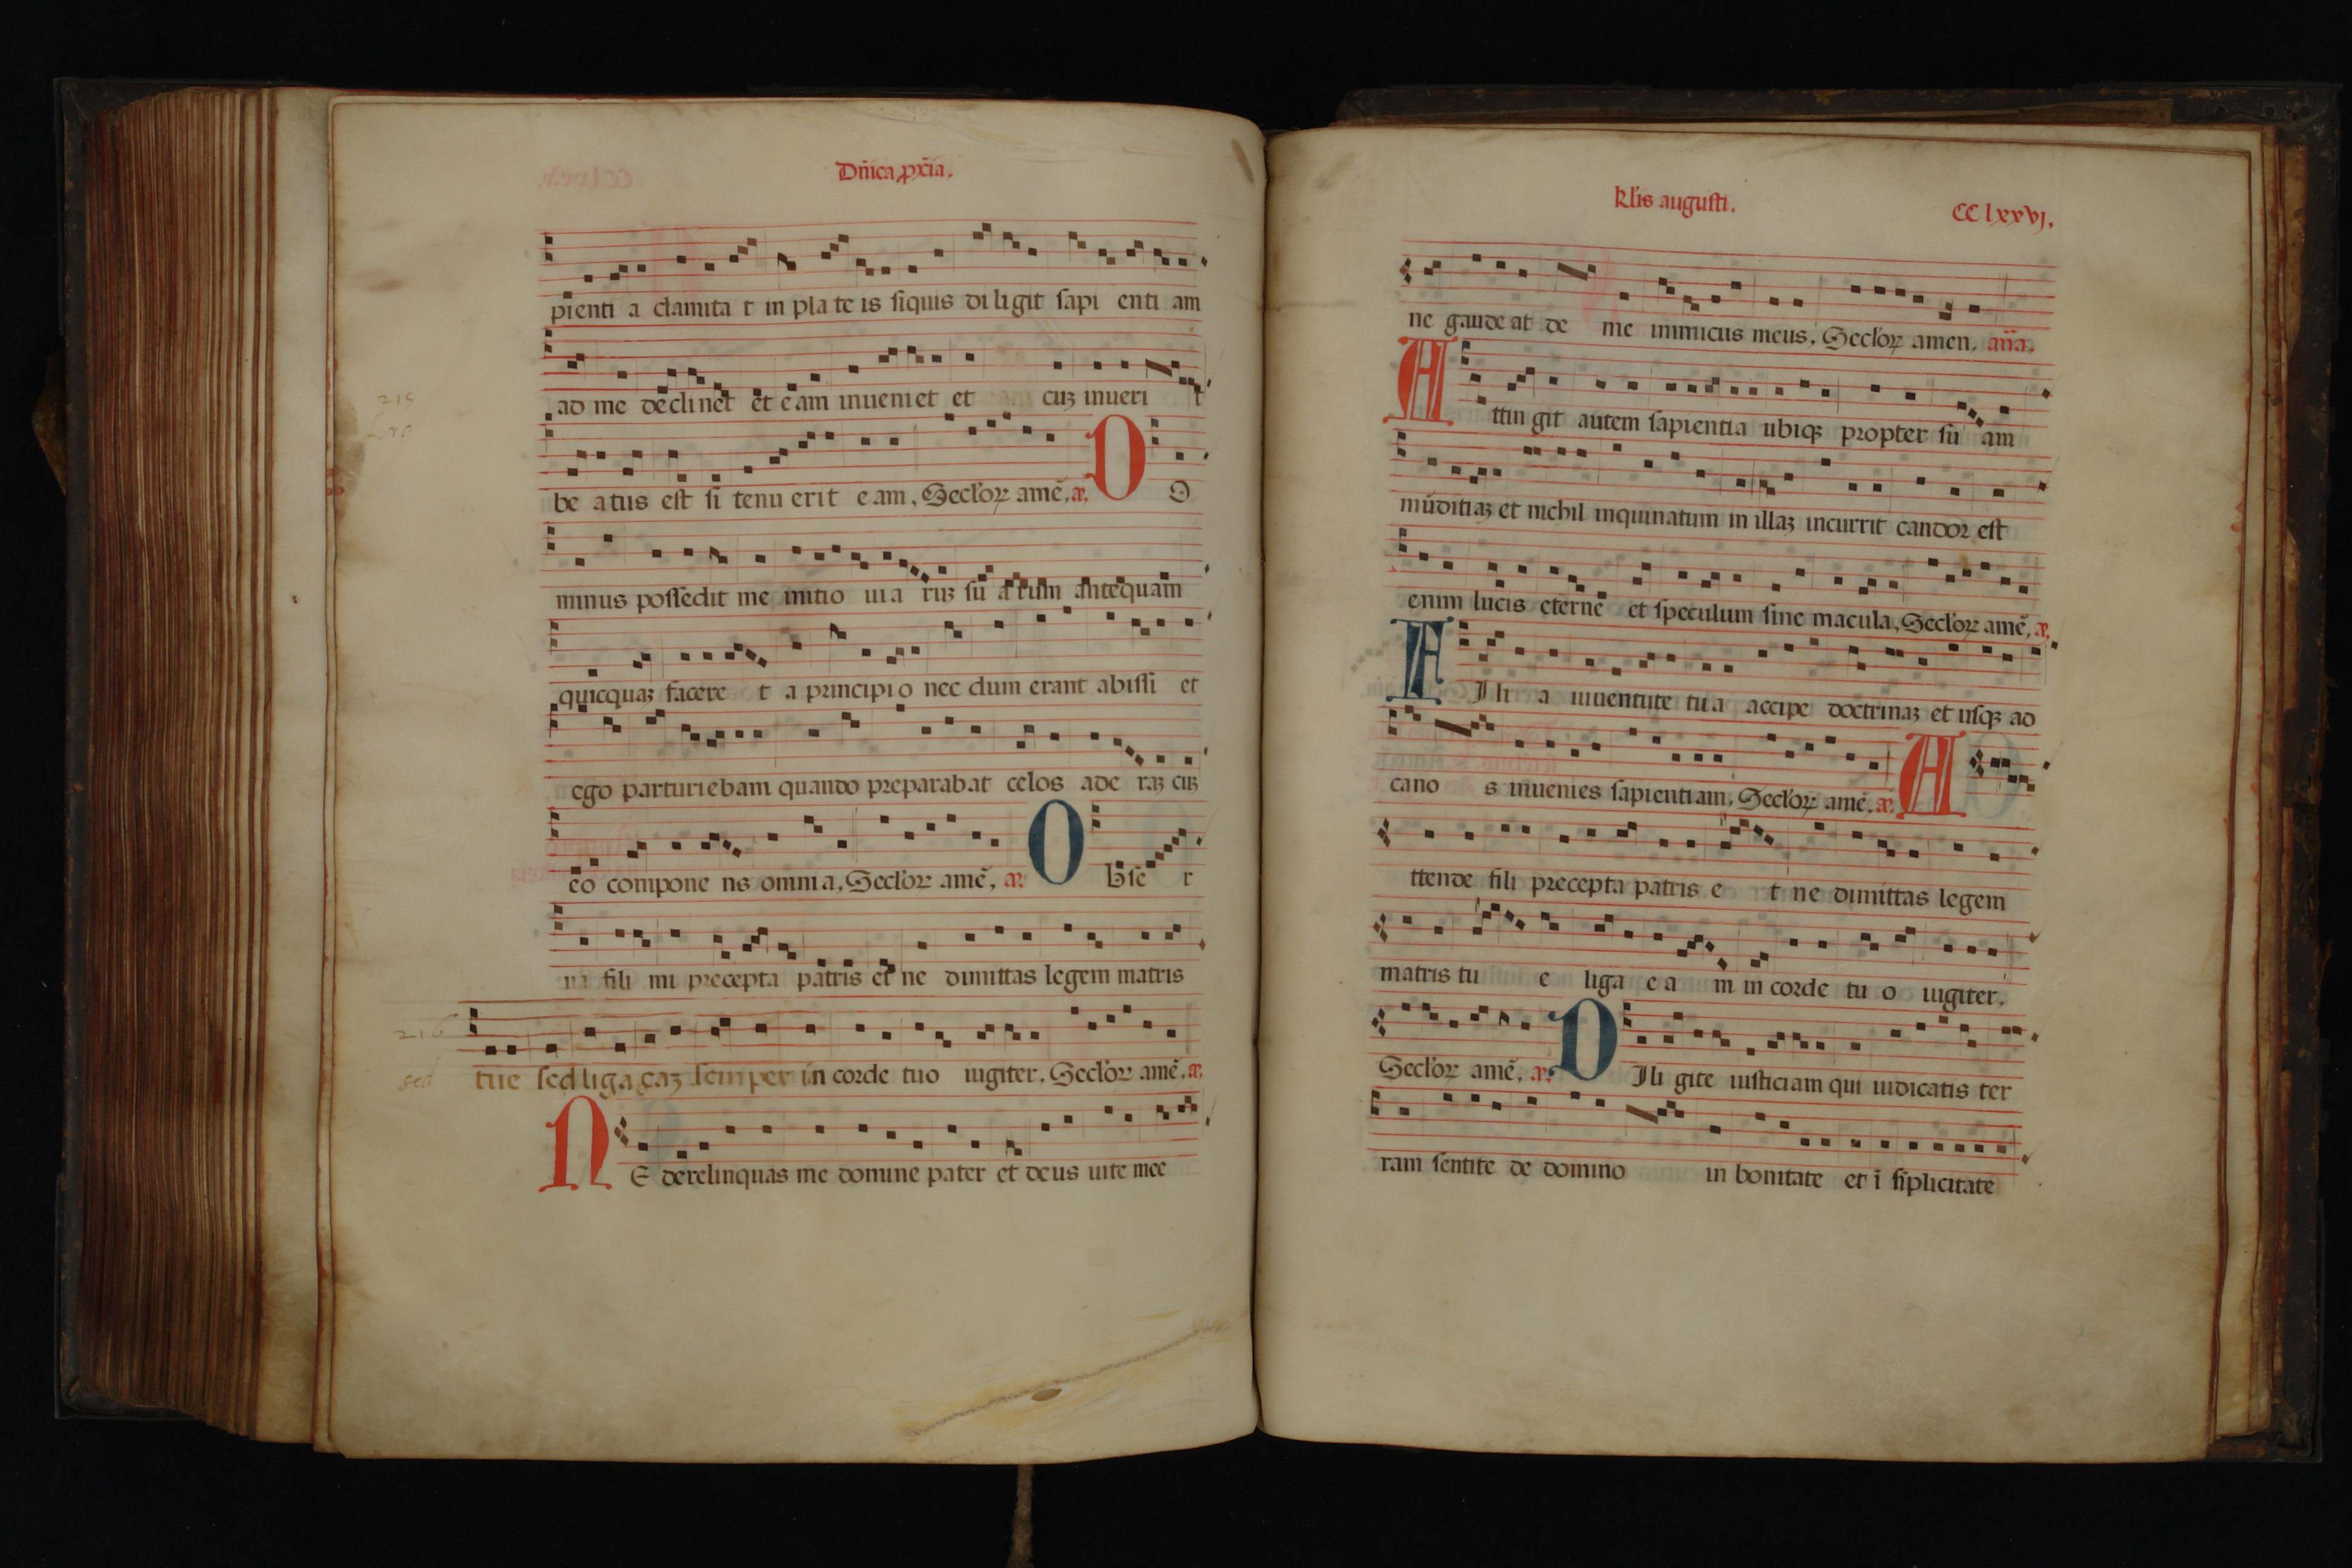 Dñica pxĩa.
pienti a clamita t in pla te is siquis di ligit sapi enti am
ad me declinet et eam inueniet et eam cuz inueri t
be atus est si tenu erit eam, Secloꝝ amẽ. æ. O O
minus possedit me initio uia ruz su arum antequam
quicquaz facere t a principio nec dum erant abissi et
ego parturiebam quando preparabat celos ade raz cuz
eo compone ns omnia, Seclorꝝ amẽ, æ. O bse r
ua fili mi precepta patris et ne dimittas legem matris
216
sed
tue sed liga eaz semper in corde tuo iugiter. Secloꝝ amẽ. æ.
N E derelinquas me domine pater et deus uite mee
Kl̃is augusti. CC lxxvj.
ne gaudeat de me inimicus meus, Secloꝝ amen, añа.
A ttin git autem sapientia ubiqꝫ propter su am
mũditiaz et nichil inquinatum in illaz incurrit candor est
enim lucis eterne et speculum sine macula, Secloꝝ amẽ, æ.
F Ili a iuuentute tua accipe doctrinaz et usqꝫ ad
cano s inuenies sapientiam. Secloꝝ amẽ. æ. A
ttende fili precepta patris e t ne dimittas legem
matris tu e liga ea m in corde tu o iugiter.
Secloꝝ amẽ. æ. D Ili gite iusticiam qui iudicatis ter
ram sentite de domino in bonitate et ĩ sĩplicitate